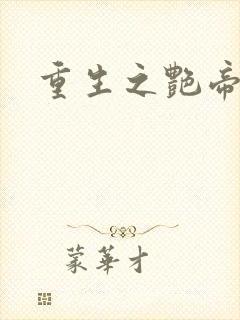 重生之艷帝
蒙華才